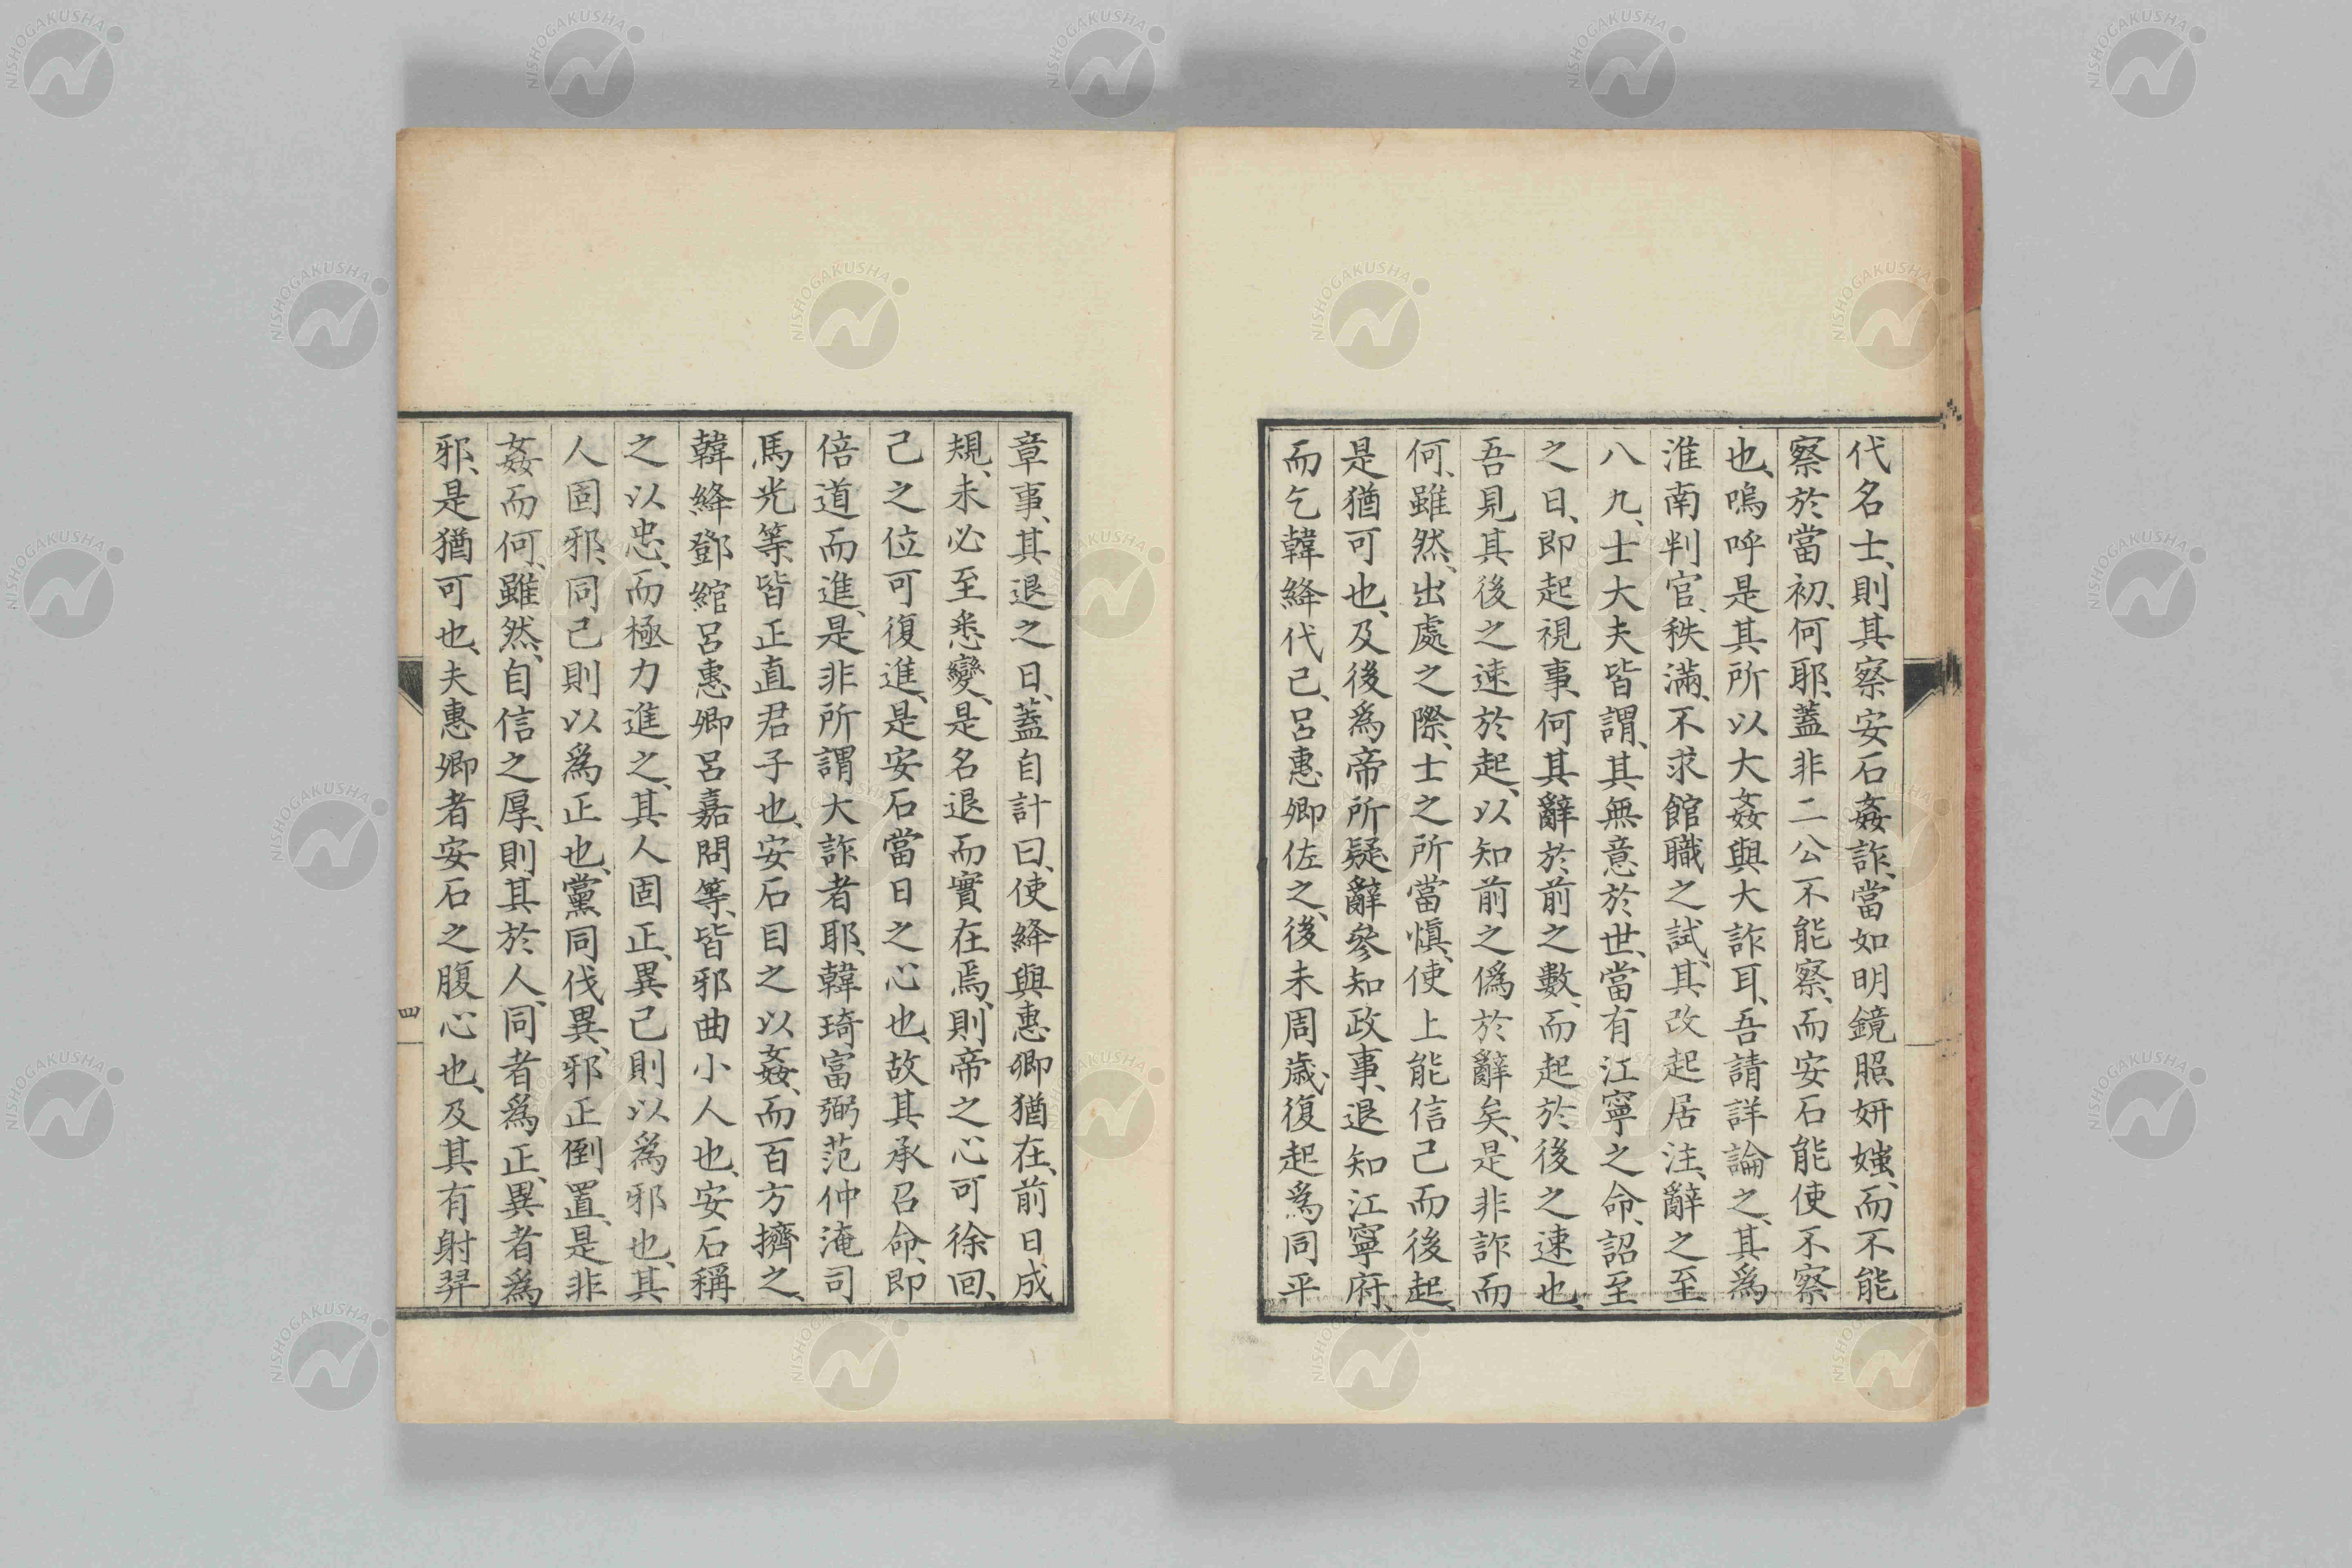 代名士、則其察安石姦詐、當如明鏡照妍媸、而不能
察於當初、何耶、蓋非二公不能察、而安石能使不察
也、嗚呼是其所以大姦與大詐耳、吾請詳論之、其爲
淮南判官、秩滿、不求館職之試、其改起居注、辭之至
八九、士大夫皆謂、其無意於世、當有江寧之命、詔至
之日、即起視事、何其辭於前之數、而起於後之速也、
吾見其後之速於起、以知前之僞於辭矣、是非詐而
何、雖然、出處之際、士之所當愼、使上能信己而後起、
是猶可也、及後爲帝所疑、辭參知政事、退知江寧府、
而乞韓絳代己、呂惠卿佐之、後未周歲、復起爲同平
章事、其退之日、蓋自計曰、使絳與惠卿猶在、前日成
規、未必至悉變、是名退而實在焉、則帝之心可徐回、
己之位可復進、是安石當日之心也、故其承召命、即
倍道而進、是非所謂大詐者耶、韓琦富弼范仲淹司
馬光等、皆正直君子也、安石目之以姦、而百方擠之、
韓絳鄧綰呂惠卿呂嘉問等、皆邪曲小人也、安石稱
之以忠、而極力進之、其人固正、異己則以爲邪也、其
人固邪、同己則以爲正也、黨同伐異、邪正倒置、是非
姦而何、雖然、自信之厚、則其於人、同者爲正、異者爲
邪、是猶可也、夫惠卿者安石之腹心也、及其有射羿
四
NISHOGAKUSHA